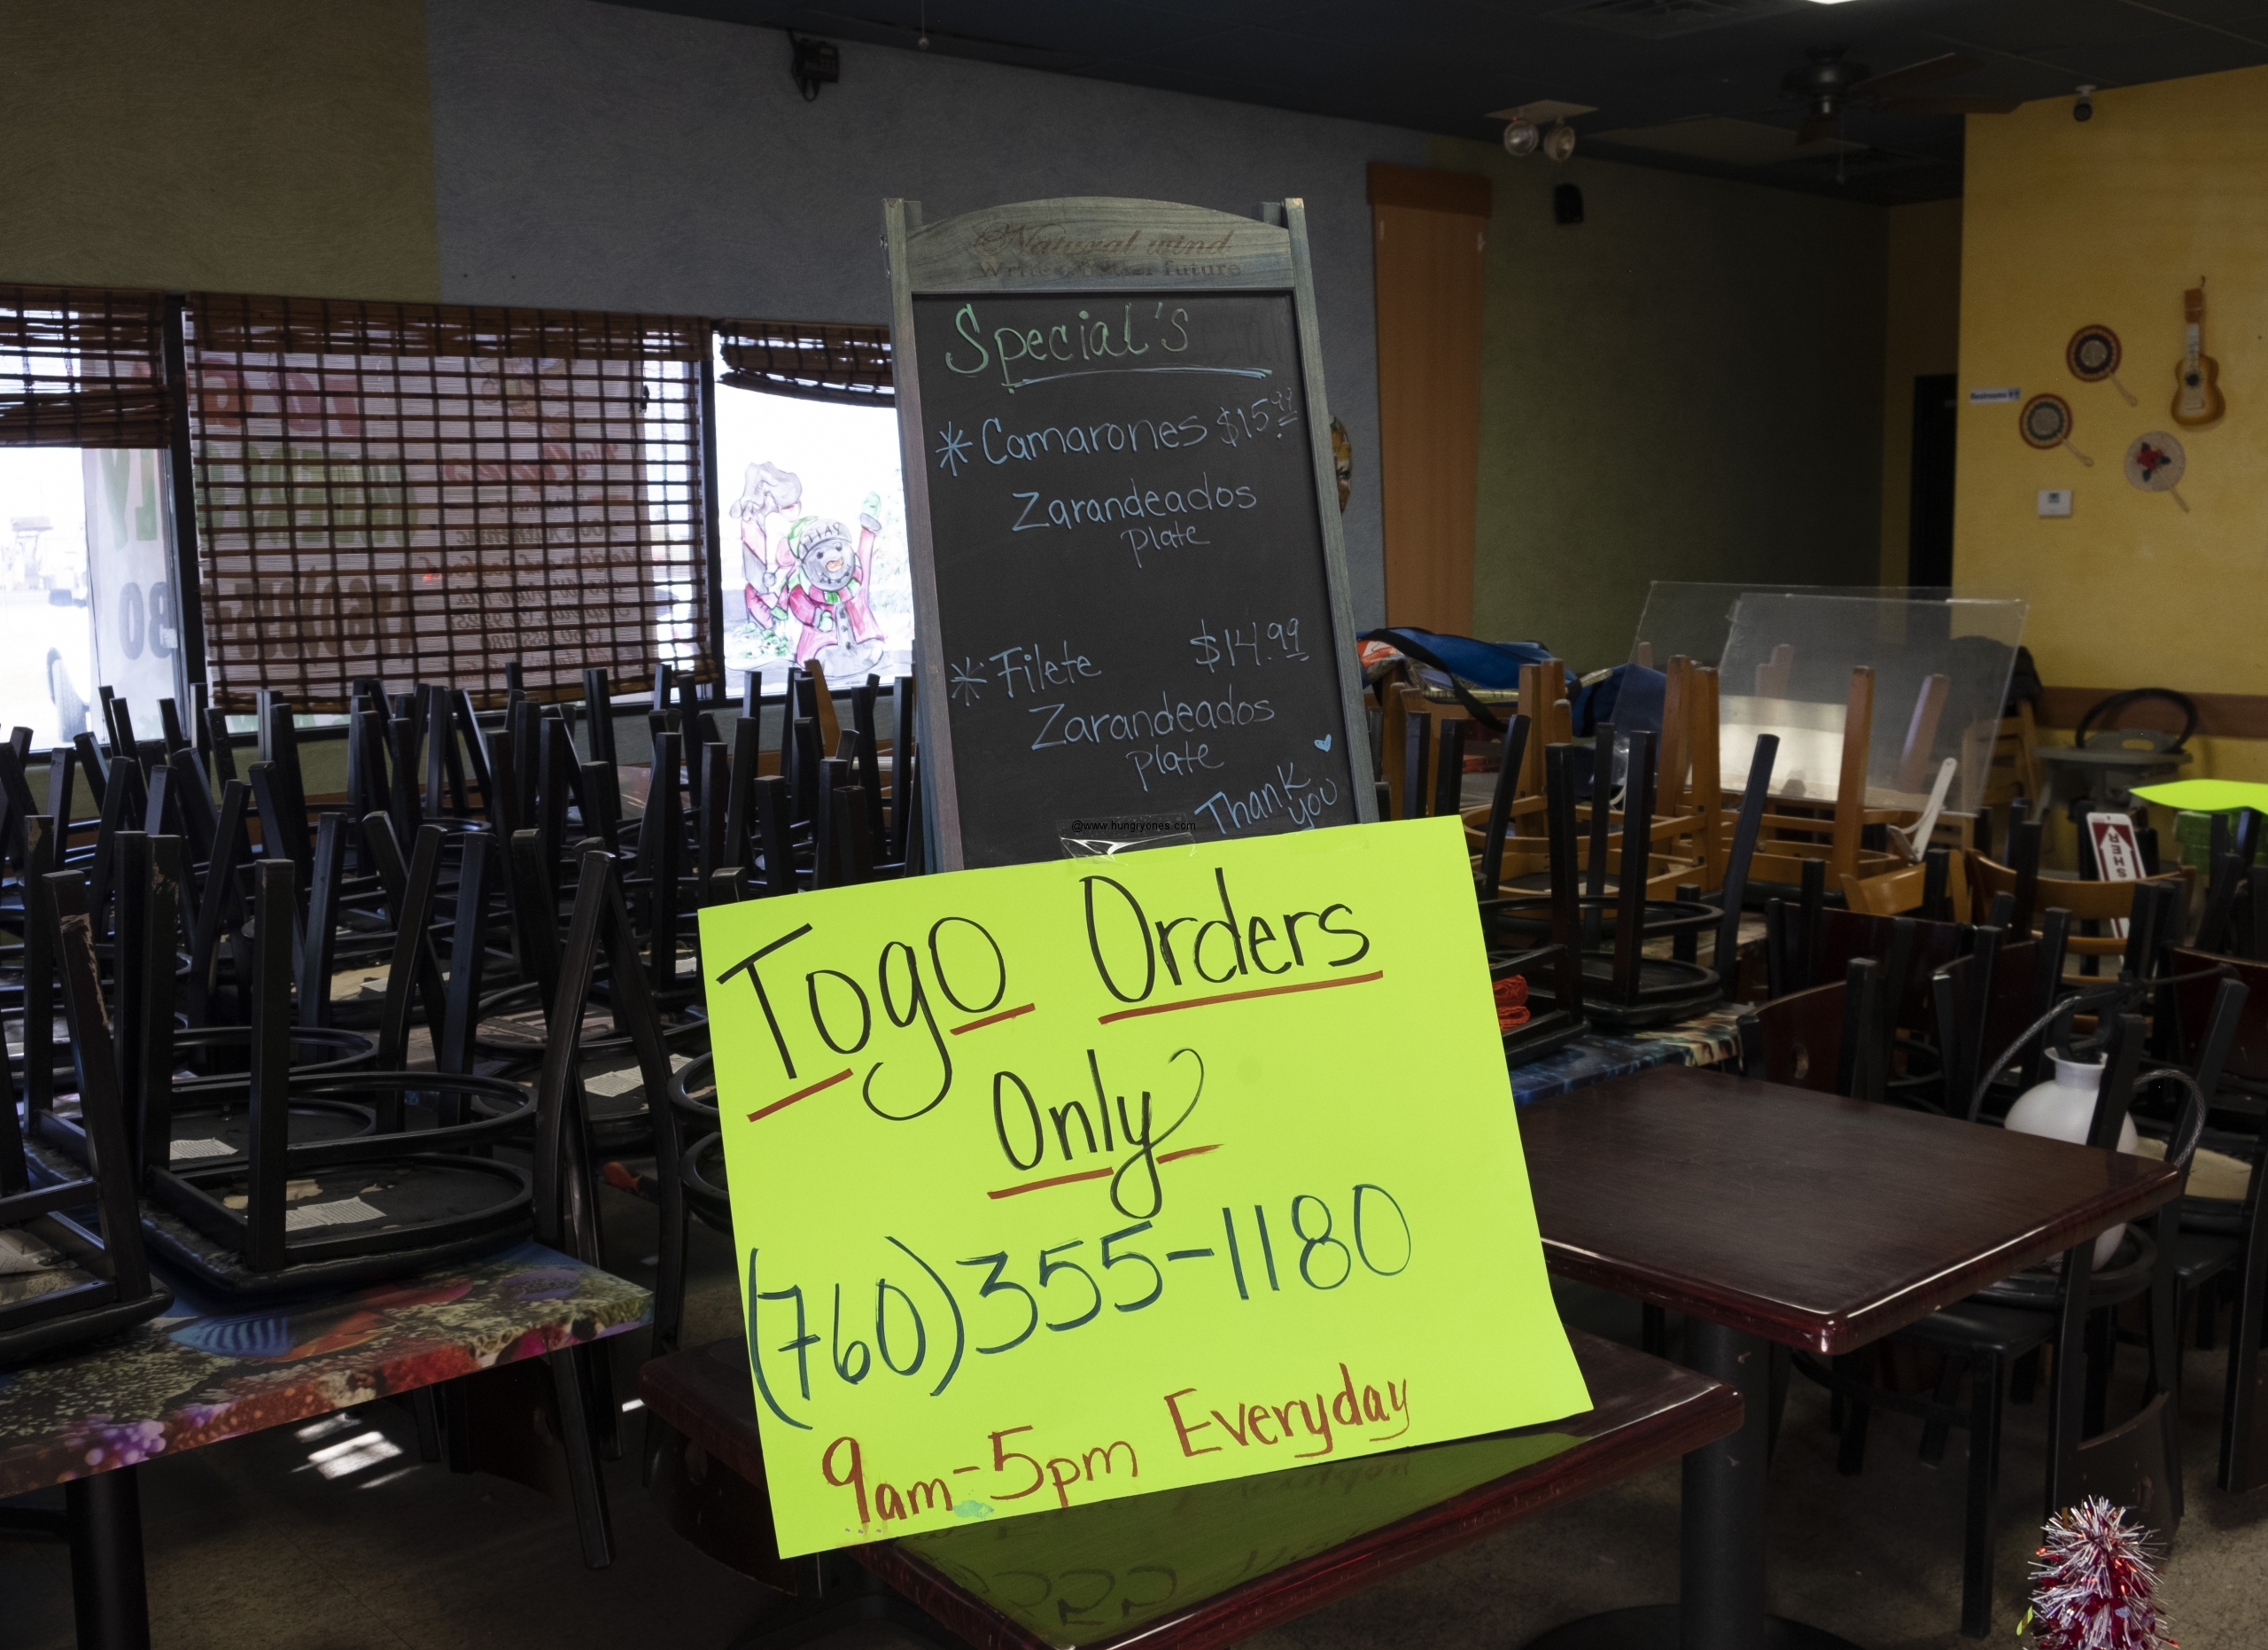 Natural wind
Special's
* Camarones $15.99
Zarandeados
plate
* Filete $14.99
Zarandeados
plate
Thank
you
@www.hungryones.com
Togo Orders
Only
(760)355-1180
9am-5pm Everyday